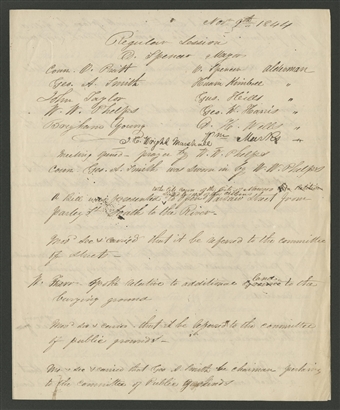 Nov. 9th 1844
Regular Session
D. Spencer Mayor
Geo. A. Smith
John Taylor
W. W. Phelps
Brigham Young
O. Spencer Alderman
Hiram Kimball "
Gus. Hills "
Geo. W. Harris "
D. H. Wells "
Marshall
Meeting opened prayer by W. W. Phelps
Coun Geo. A. Smith was sworn in by W. W. Phelps
A Bill was presented to open Street from
Parley St South to the River
Mot. sec & carried that it be referred to the committee
of streets
spoke relative to additional land to the
burying ground
Mot. sec & carried that it be referred to the committee
of public grounds
Mo. sec & carried that Geo A Smith be chairman
to the committee of Public Grounds